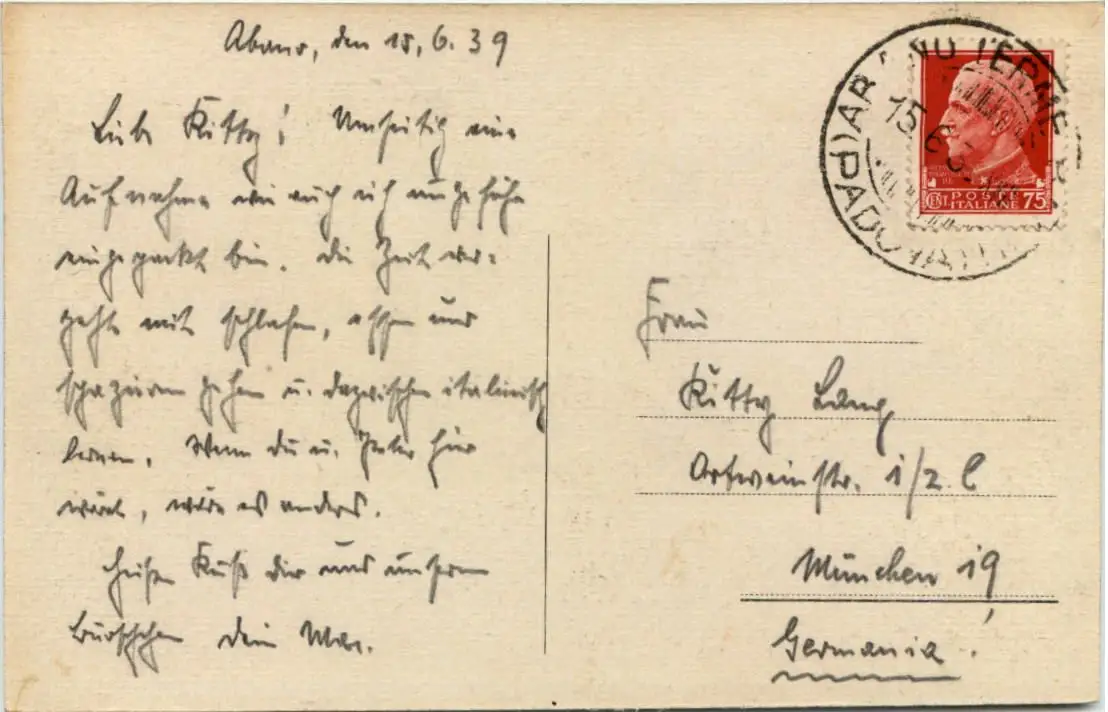 Abano, den 15.6.39
Liebe Kitty! Umseitig eine
Aufnahme wie auch ich ungefähr
eingepackt bin. Die Zeit ver-
geht mit schlafen, essen und
spazieren gehen u. dazwischen italienisch
lernen. Wenn du u. Peter hier
wäret, wäre es anders.
Heißen Kuß dir und unserem
Burschchen Dein Max.
ABANO TERME
15 6 3
(PADOVA)
POSTE
ITALIANE
CENT. 75
Frau
Kitty Lang
str. 1/2. l
München 19
Germania.